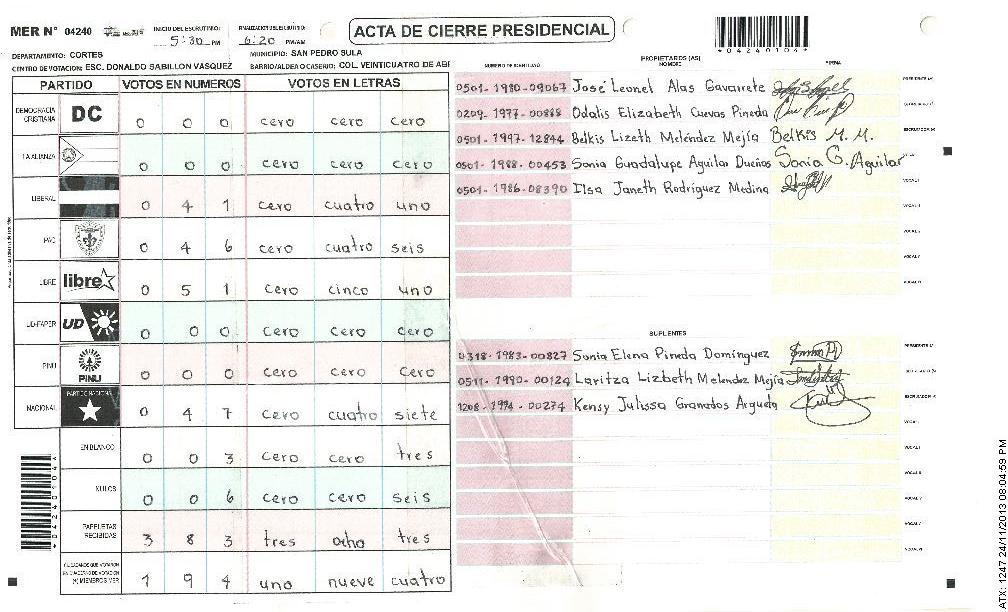 MER N° 04240
INICIO DEL ESCRUTINIO:
5:30 PM
FINALIZACION DEL ESCRUTINIO:
6:20 PM/AM
ACTA DE CIERRE PRESIDENCIAL
*04240104*
DEPARTAMENTO: CORTES
MUNICIPIO: SAN PEDRO SULA
CENTRO DE VOTACION: ESC. DONALDO SABILLON VASQUEZ
BARRIO/ALDEA O CASERIO: COL. VEINTICUATRO DE ABI
PARTIDO VOTOS EN NUMEROS VOTOS EN LETRAS
DEMOCRACIA CRISTIANA DC 0 0 0 cero cero cero
LA ALIANZA 0 0 0 cero cero cero
LIBERAL 0 4 1 cero cuatro uno
PAC 0 4 6 cero cuatro seis
LIBRE libre 0 5 1 cero cinco uno
UD-FAPER UD 0 0 0 cero cero cero
PINU PINU 0 0 0 cero cero cero
NACIONAL PARTIDO NACIONAL 0 4 7 cero cuatro siete
EN BLANCO 0 0 3 cero cero tres
NULOS 0 0 6 cero cero seis
PAPELETAS RECIBIDAS 3 8 3 tres ocho tres
CIUDADANOS QUE VOTARON EN CUADERNO DE VOTACION (+) MIEMBROS MER 1 9 4 uno nueve cuatro
*04240104*
PROPIETARIOS (AS)
NUMERO DE IDENTIDAD NOMBRE FIRMA
0501-1980-09067 José Leonel Alas Gavarrete
0209-1977-00888 Odalis Elizabeth Cuevas Pineda
0501-1997-12844 Belkis Lizeth Meléndez Mejía Belkis M. M.
0501-1988-00453 Sonia Guadalupe Aguilar Dueños Sonia G. Aguilar
0501-1986-08390 Ilsa Janeth Rodríguez Medina
SUPLENTES
0318-1983-00827 Sonia Elena Pineda Domínguez
0511-1990-00124 Laritza Lizbeth Melendez Mejía
1208-1994-00274 Kensy Julissa Granados Argueta
ATX: 1247 24/11/2013 08:04:59 PM